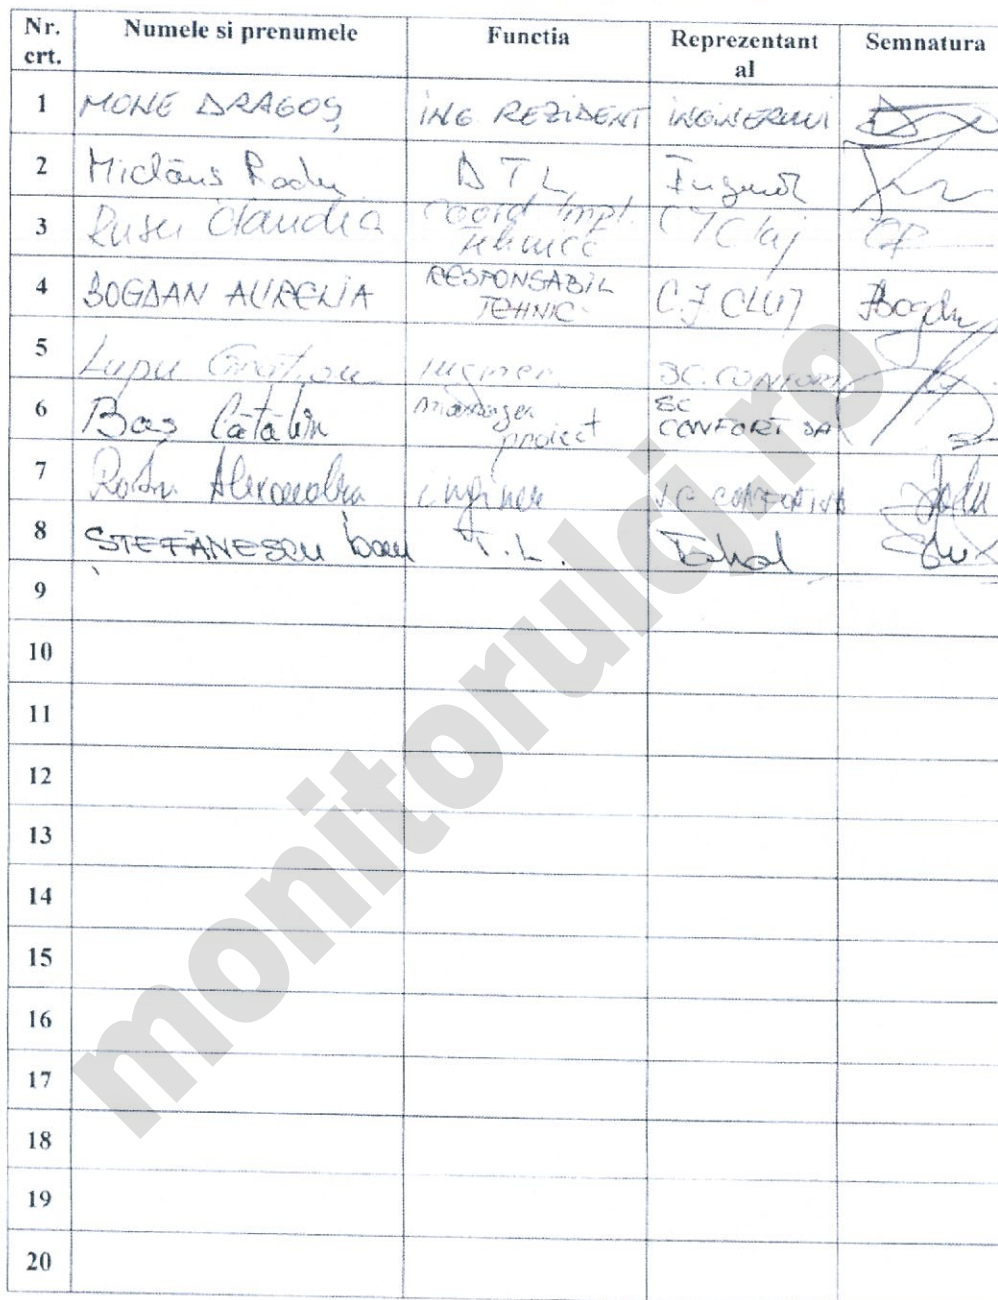 Nr. crt. Numele si prenumele Functia Reprezentant al Semnatura
1 MONE DRAGOȘ ING REZIDENT INGINERULUI
2 Miclăus Radu DTL Inginer
3 Rusu Claudia coord impl. tehnice CJ Cluj
4 BOGDAN AURELIA RESPONSABIL TEHNIC C.J CLUJ Bogdan
5 Lupu inginer SC. CONFORT
6 Baș Cătălin manager proiect SC CONFORT SA
7 Alexandru inginer SC CONFORT SA
8 ȘTEFĂNESCU Dan T.L. Tahal
9
10
11
12
13
14
15
16
17
18
19
20
monitorulcj.ro